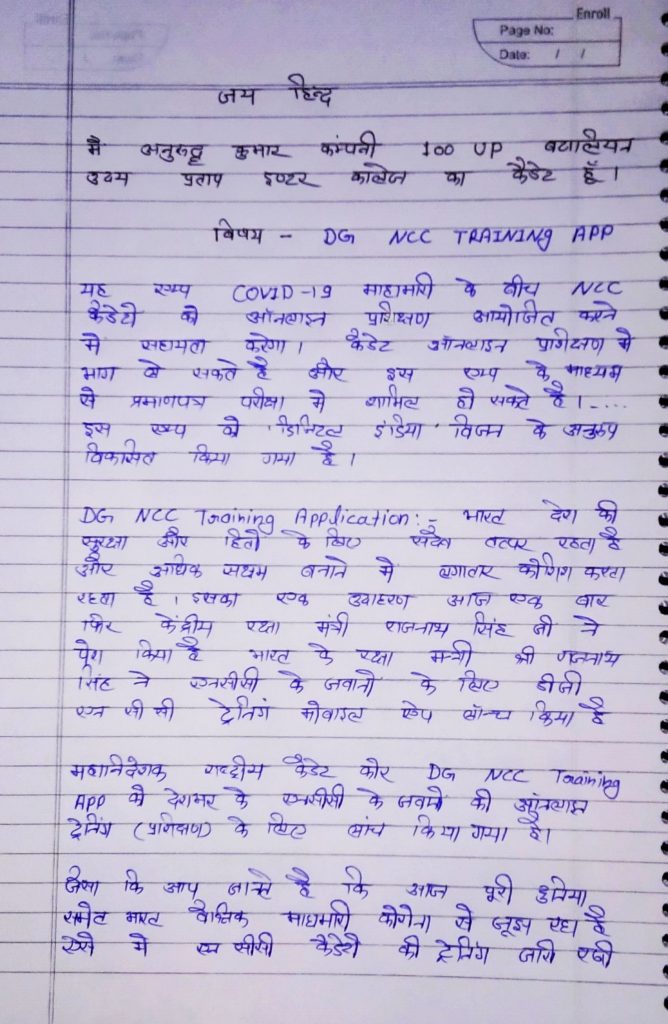 Enroll
Page No:
Date: / /
जय हिन्द
मै अनुरुद्ध कुमार कंम्पनी 100 UP बटालियन
उदय प्रताप इण्टर कालेज का कैडेट हूँ ।
विषय - DG NCC TRAINING APP
यह एप्प COVID-19 माहामारी के बीच NCC
कैडेटो को ऑनलाइन प्रशिक्षण आयोजित करने
में सहायता करेगा । कैडेट ऑनलाइन प्रशिक्षण में
भाग ले सकते है और इस एप्प के माध्यम
से प्रमाणपत्र परीक्षा मे शामिल हो सकते है ।-....
इस एप्प को 'डिजिटल इंडिया' विजन के अनुरुप
विकासित किया गया है ।
DG NCC Training Application:- भारत देश की
सुरक्षा और हितो के लिए सदैव तत्पर रहता है
और अधिक सक्षम बनाने मे लगातार कोशिश करता
रहता है । इसका एक उदाहरण आज एक बार
फिर केंद्रीय रक्षा मंत्री राजनाथ सिंह जी ने
पेश किया है भारत के रक्षा मन्त्री श्री राजनाथ
सिंह ने एनसीसी के जवानो के लिए डीजी
एन सी सी ट्रेनिंग मोबाइल ऐप लॉन्च किया है
महानिदेशक राष्ट्रीय कैडेट कोर DG NCC Training
APP को देशभर के एनसीसी के जवानो की ऑनलाइन
ट्रेनिंग (प्रशिक्षण) के लिए लांच किया गया है।
जैसा कि आप जानते है कि आज पूरी दुनिया
समेत भारत वैश्विक माहामारी कोरोना से जूझ रहा है
ऐसे मे एन सीसी कैडेटो की ट्रेनिंग जारी रखी